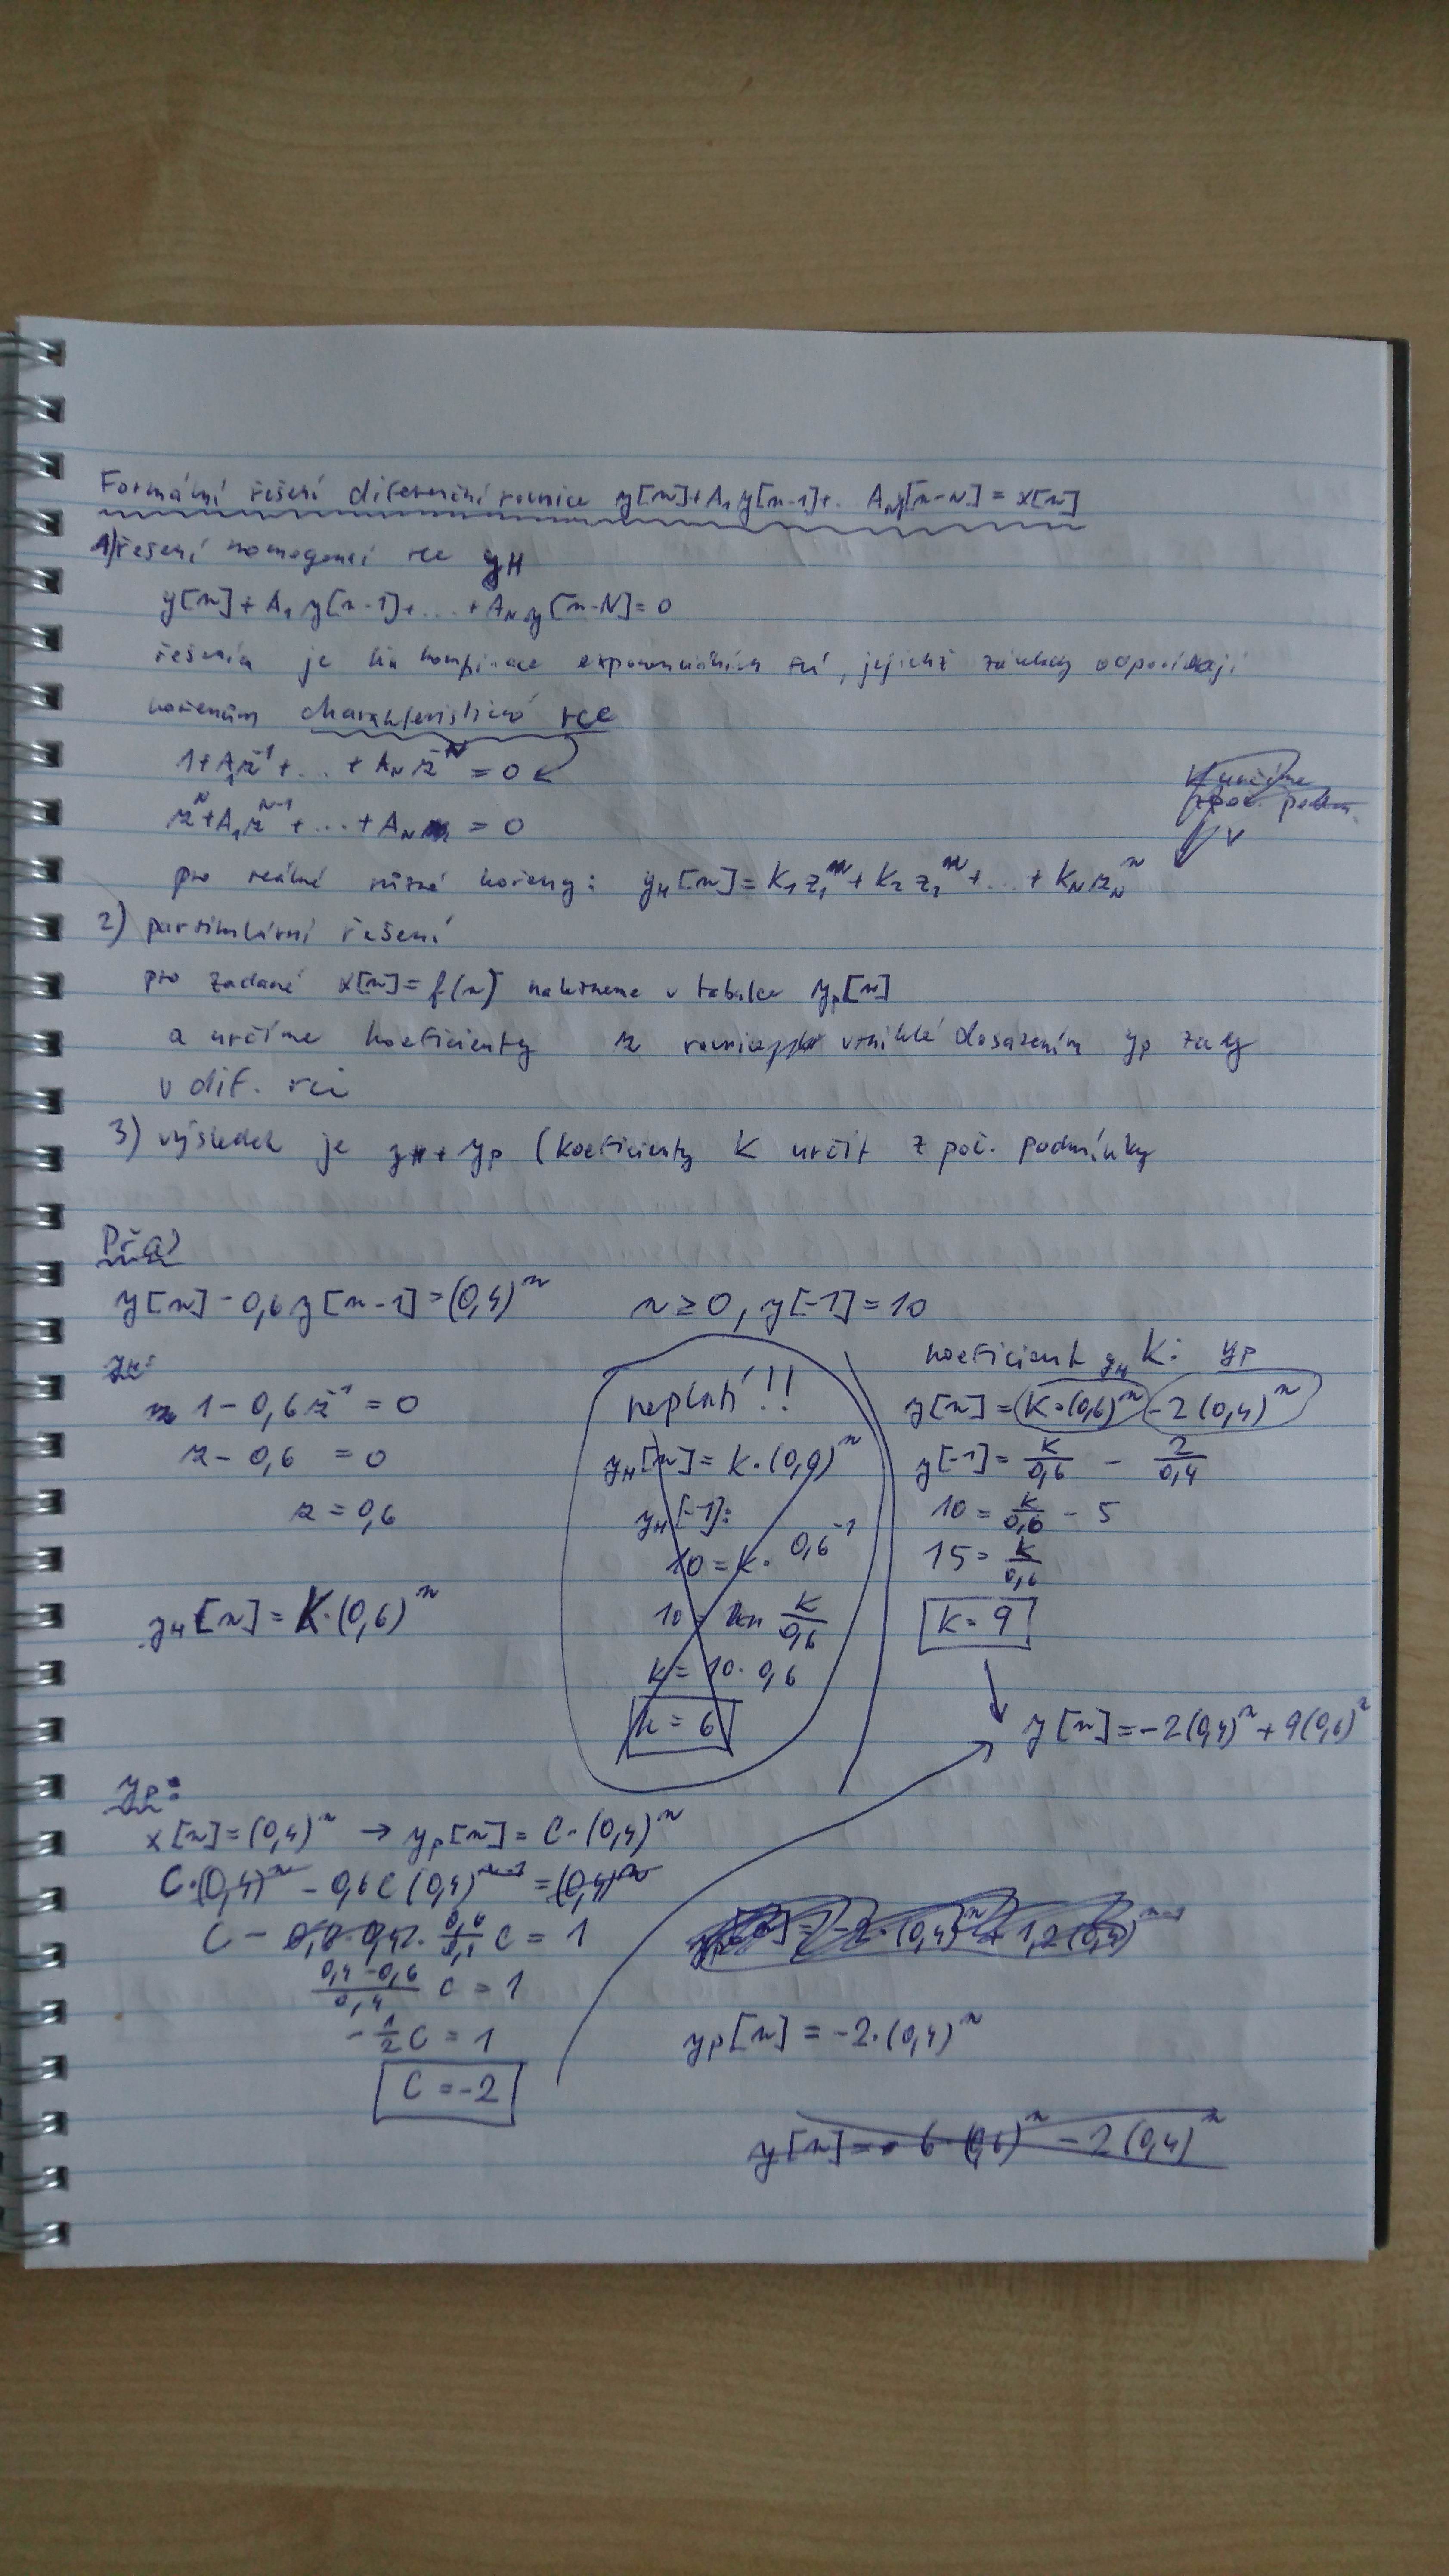 Formální řešení diferenční rovnice y[n]+A₁y[n-1]+.. A_N y[n-N] = x[n]
1) řešení homogenní rce y_H
y[n] + A₁ y[n-1]+ ... + A_N y[n-N] = 0
řešením je lin kombinace exponenciálních fcí, jejichž základy odpovídají
kořenům charakteristické rce
1 + A₁z⁻¹ + ... + A_N z⁻ᴺ = 0
zᴺ + A₁zᴺ⁻¹ + ... + A_N = 0
K určíme
z poč. podm.
pro reálné různé kořeny: y_H[n] = K₁z₁ⁿ + K₂z₂ⁿ + ... + K_N z_Nⁿ
2) partikulární řešení
pro zadané x[n] = f(n) nalezneme v tabulce y_p[n]
a určíme koeficienty z rovnice vzniklé dosazením y_p za y
v dif. rci
3) výsledek je y_H + y_p (koeficienty K určit z poč. podmínky
Př a)
y[n] - 0,6y[n-1] = (0,4)ⁿ n ≥ 0, y[-1] = 10
y_H:
1 - 0,6z⁻¹ = 0
z - 0,6 = 0
z = 0,6
y_H[n] = K·(0,6)ⁿ
neplatí!!
y_H[n] = K·(0,9)ⁿ
y_H[-1]:
10 = K· 0,6⁻¹
10 = K/0,6
K = 10·0,6
K = 6
koeficient y_H K: y_p
y[n] = K·(0,6)ⁿ - 2(0,4)ⁿ
y[-1] = K/0,6 - 2/0,4
10 = K/0,6 - 5
15 = K/0,6
K = 9
y[n] = -2(0,4)ⁿ + 9(0,6)ⁿ
y_p:
x[n] = (0,4)ⁿ → y_p[n] = C·(0,4)ⁿ
C·(0,4)ⁿ - 0,6C(0,4)ⁿ⁻¹ = (0,4)ⁿ
C - 0,6/0,4 C = 1
(0,4-0,6)/0,4 C = 1
-1/2 C = 1
C = -2
y_p[n] = -2·(0,4)ⁿ + 1,2(0,4)ⁿ⁻¹
y_p[n] = -2·(0,4)ⁿ
y[n] = 6·(0,6)ⁿ - 2(0,4)ⁿ